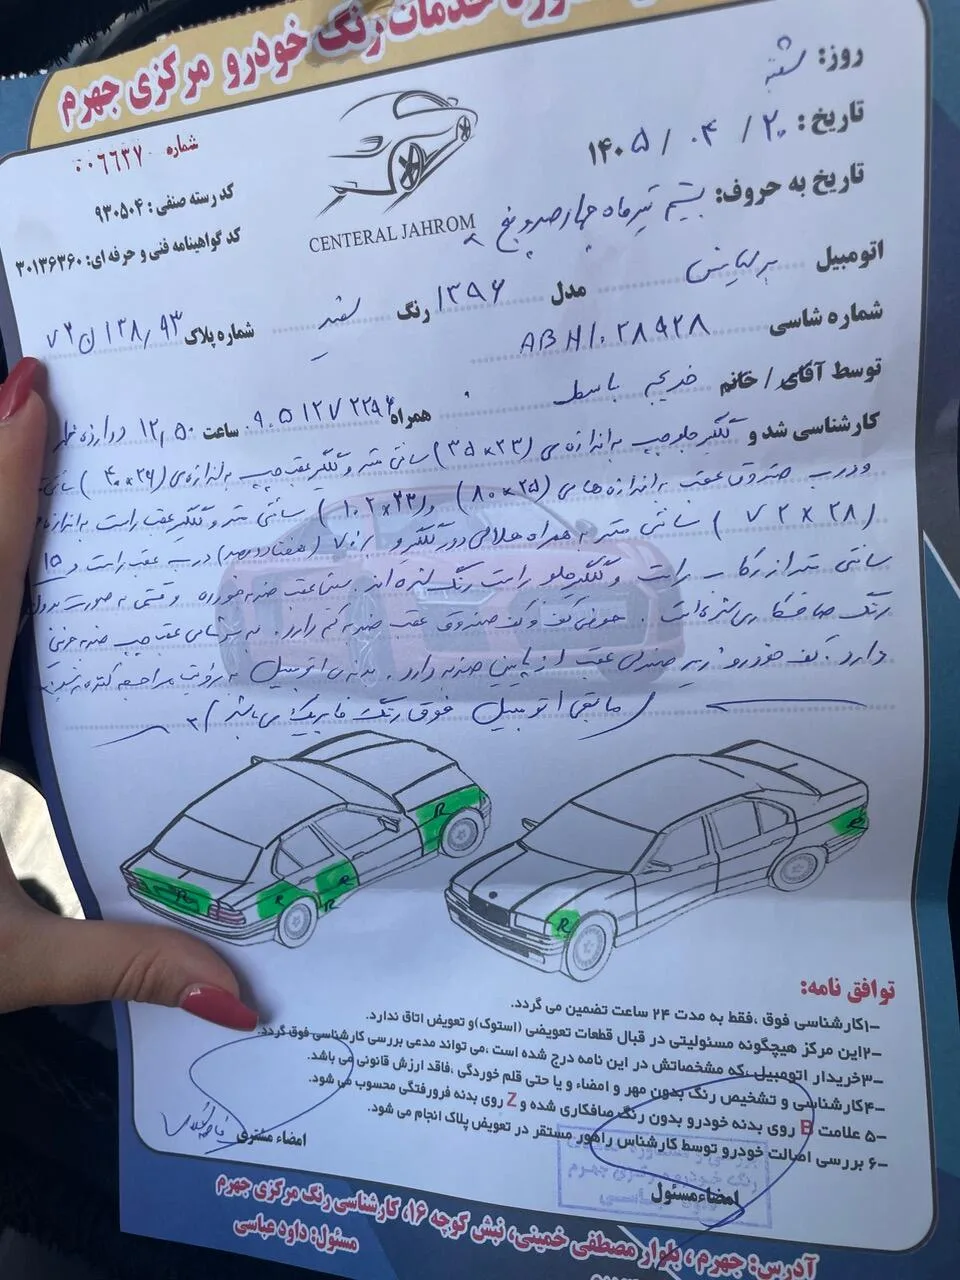 خدمات رنگ خودرو مرکزی جهرم
روز: شنبه
تاریخ: ۱۴۰۵/۰۴/۲۰
تاریخ به حروف: بیستم تیرماه چهارصد و پنج
شماره ۰۰۶۶۳۷
کد رسته صنفی: ۹۳۰۵۰۴
کد گواهینامه فنی و حرفه ای: ۳۰۱۳۶۳۶۰
CENTERAL JAHROM
اتومبیل برلیانس مدل ۱۳۹۶ رنگ سفید شماره پلاک ۹۳ / ۱۳۸ ن ۷۲
شماره شاسی
توسط آقای / خانم خدیجه باسط همراه ساعت ۱۲,۵۰ دوازده
کارشناسی شد و گلگیر جلو چپ به اندازه ی (۳۵×۲۳) سانتی متر و گلگیر عقب چپ به اندازه ی (۴۰×۲۶)
و درب صندوق عقب به اندازه های (۸۰×۲۵) و (۱۰۲×۲۳) سانتی متر و گلگیر عقب راست به اندازه
(۷۲×۲۸) سانتی متر به همراه هلالی دور گلگیر و ۷۰٪ (هفتاد درصد) درب عقب راست و ۱۵
سانتی متر از رکاب راست و گلگیر جلو راست رنگ شده اند. عقب ضربه خورده و قسمتی به صورت بدون
رنگ صافکاری شده است. کف صندوق عقب ضربه کم دارد. عقب چپ ضربه جزئی
دارد. کف خودرو زیر صندلی عقب از پایین ضربه دارد. بدنه ی اتومبیل به رویت مراجعه کننده رسید
مابقی اتومبیل فوق رنگ فابریک می باشد
R
R
R
R
R
R
R
توافق نامه:
۱- کارشناسی فوق ،فقط به مدت ۲۴ ساعت تضمین می گردد.
۲- این مرکز هیچگونه مسئولیتی در قبال قطعات تعویضی (استوک)و تعویض اتاق ندارد.
۳- خریدار اتومبیل ،که مشخصاتش در این نامه درج شده است ،می تواند مدعی بررسی کارشناسی فوق گردد.
۴- کارشناسی و تشخیص رنگ بدون مهر و امضاء و یا حتی قلم خوردگی ،فاقد ارزش قانونی می باشد.
۵- علامت B روی بدنه خودرو بدون رنگ صافکاری شده و Z روی بدنه فرورفتگی محسوب می شود.
۶- بررسی اصالت خودرو توسط کارشناس راهور مستقر در تعویض پلاک انجام می شود.
امضاء مشتری
امضاء مسئول
آدرس: جهرم ، بلوار مصطفی خمینی، نبش کوچه ۱۶، کارشناسی رنگ مرکزی جهرم
مسئول: داود عباسی